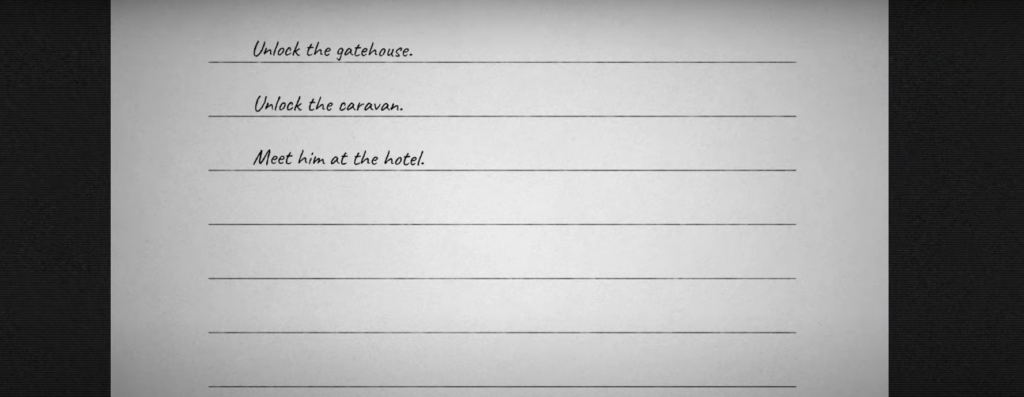 Unlock the gatehouse.
Unlock the caravan.
Meet him at the hotel.